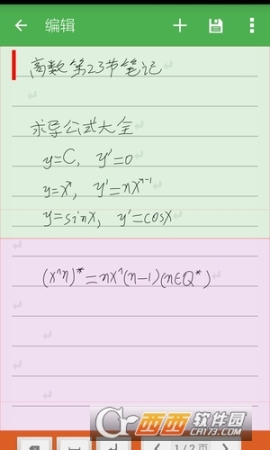 编辑
高数第23节笔记
求导公式大全
y=C, y'=0
y=xⁿ, y'=nxⁿ⁻¹
y=sinx, y'=cosx
(x^n)*=nx^(n-1)(n∈Q*)
西西软件园
CR173.COM
1/2页